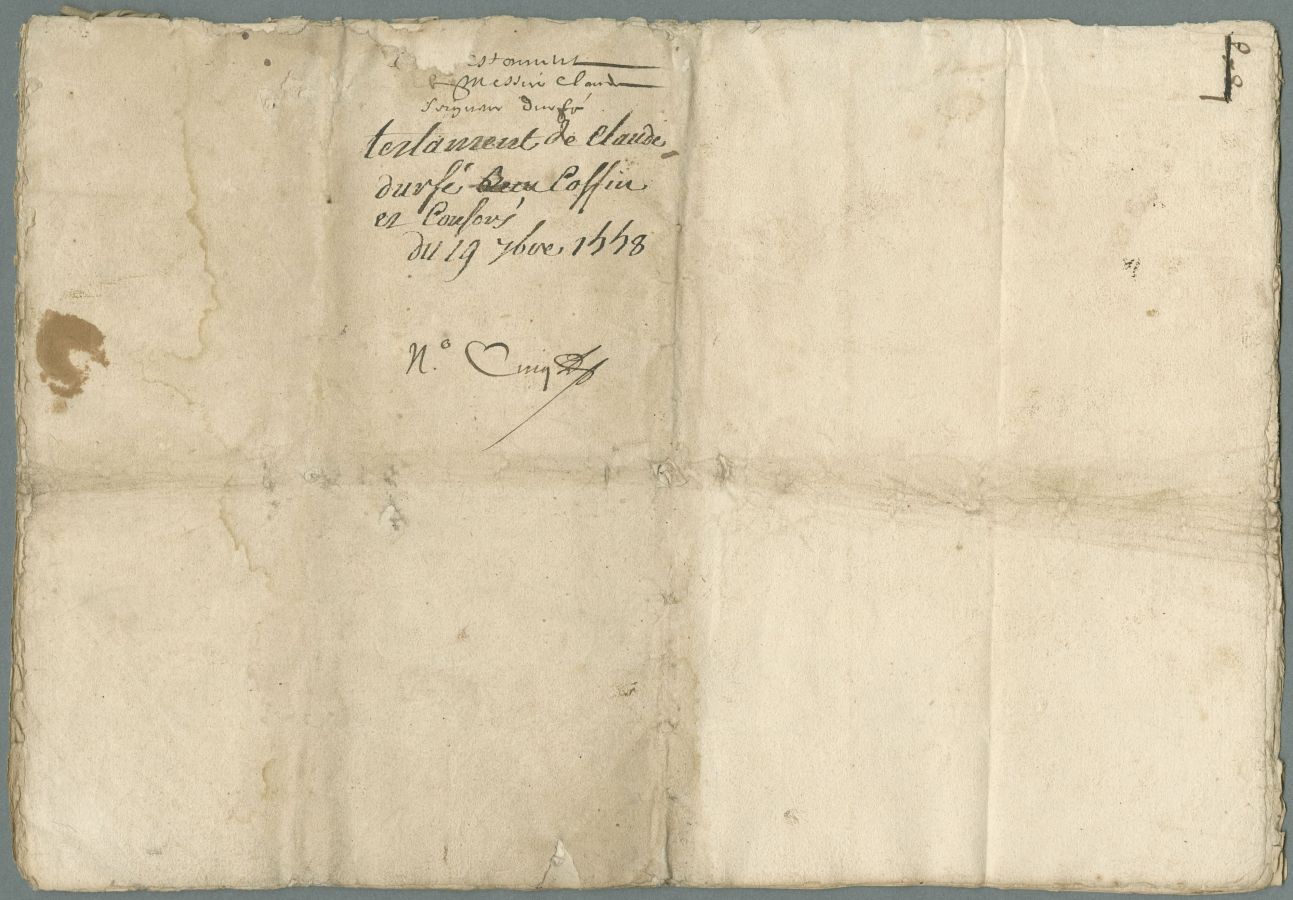 estament
Messire Claude
Seigneur durfé
testament de Claude
durfé Coffin
et Consors
du 19 7bre 1558
N.° Cinq